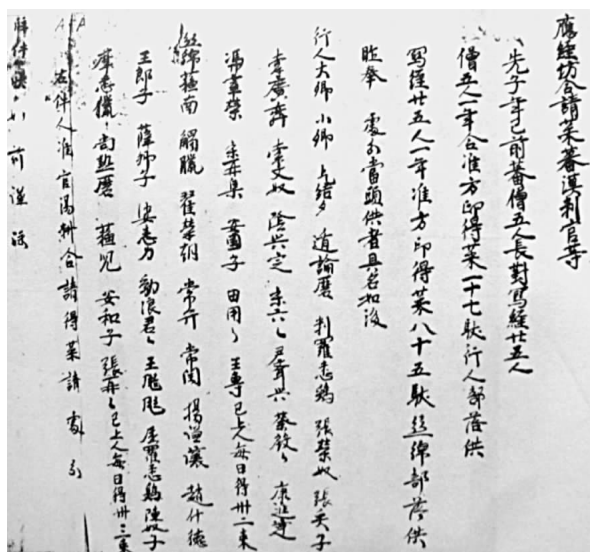 應經坊合請菜蕃漢判官等
先子年已前蕃僧五人長對寫經廿五人
僧五人一年合准方印得菜一十七馱行人部落供
寫經廿五人一年准方印得菜八十五馱絲綿部落供
昨奉 處分當頭供者具名如後
行人大卿 小卿 遁論磨 判羅悉雞 張榮奴 張天子
李廣齊 李文奴 陰興定 宋六〻 尹齊興 蔡發〻 康進達
馮車榮 宋再集 安國子 田用〻 王專已上人每日得卅二束
絲綿蘇南 觸臘 翟榮朝 常弁 常閏 楊謙讓 趙什德
王郎子 薛師子 娑志力 勃浪君〻 王颷颷 屈羅悉雞 陳奴子
摩志獵 蘇兒 安和子 張再〻已上人每日得卅二束
右件人准官湯料合請得菜請處分
牒件 如前謹牒